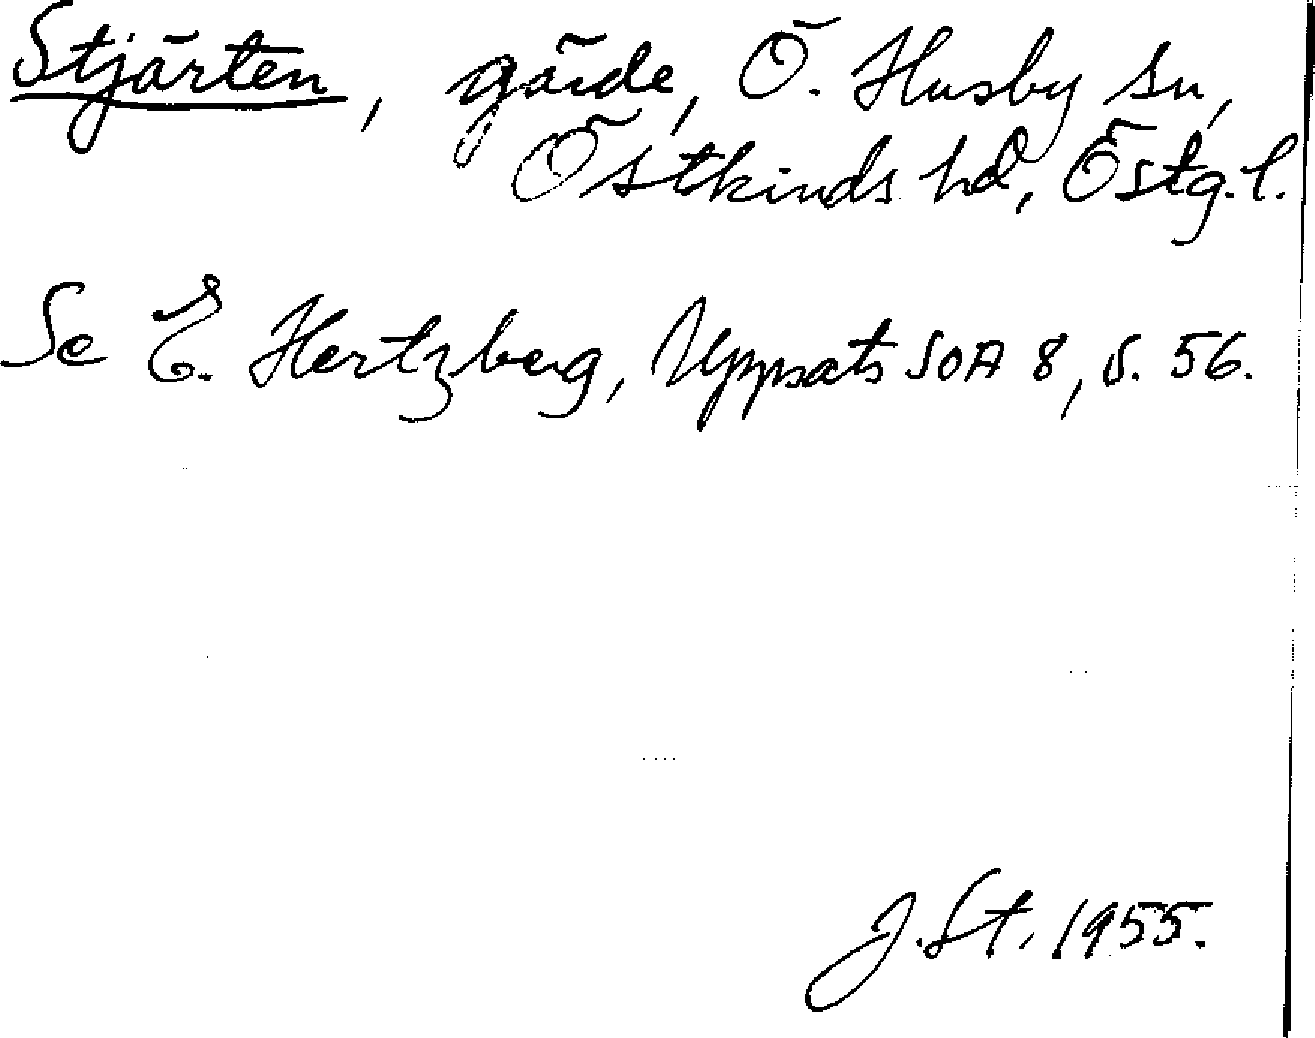 Stjärten, gärde, Ö. Husby sn,
Östkinds hd, Östg. l.
Se E. Hertzberg, Uppsats SOA 8, s. 56.
J. St. 1955.